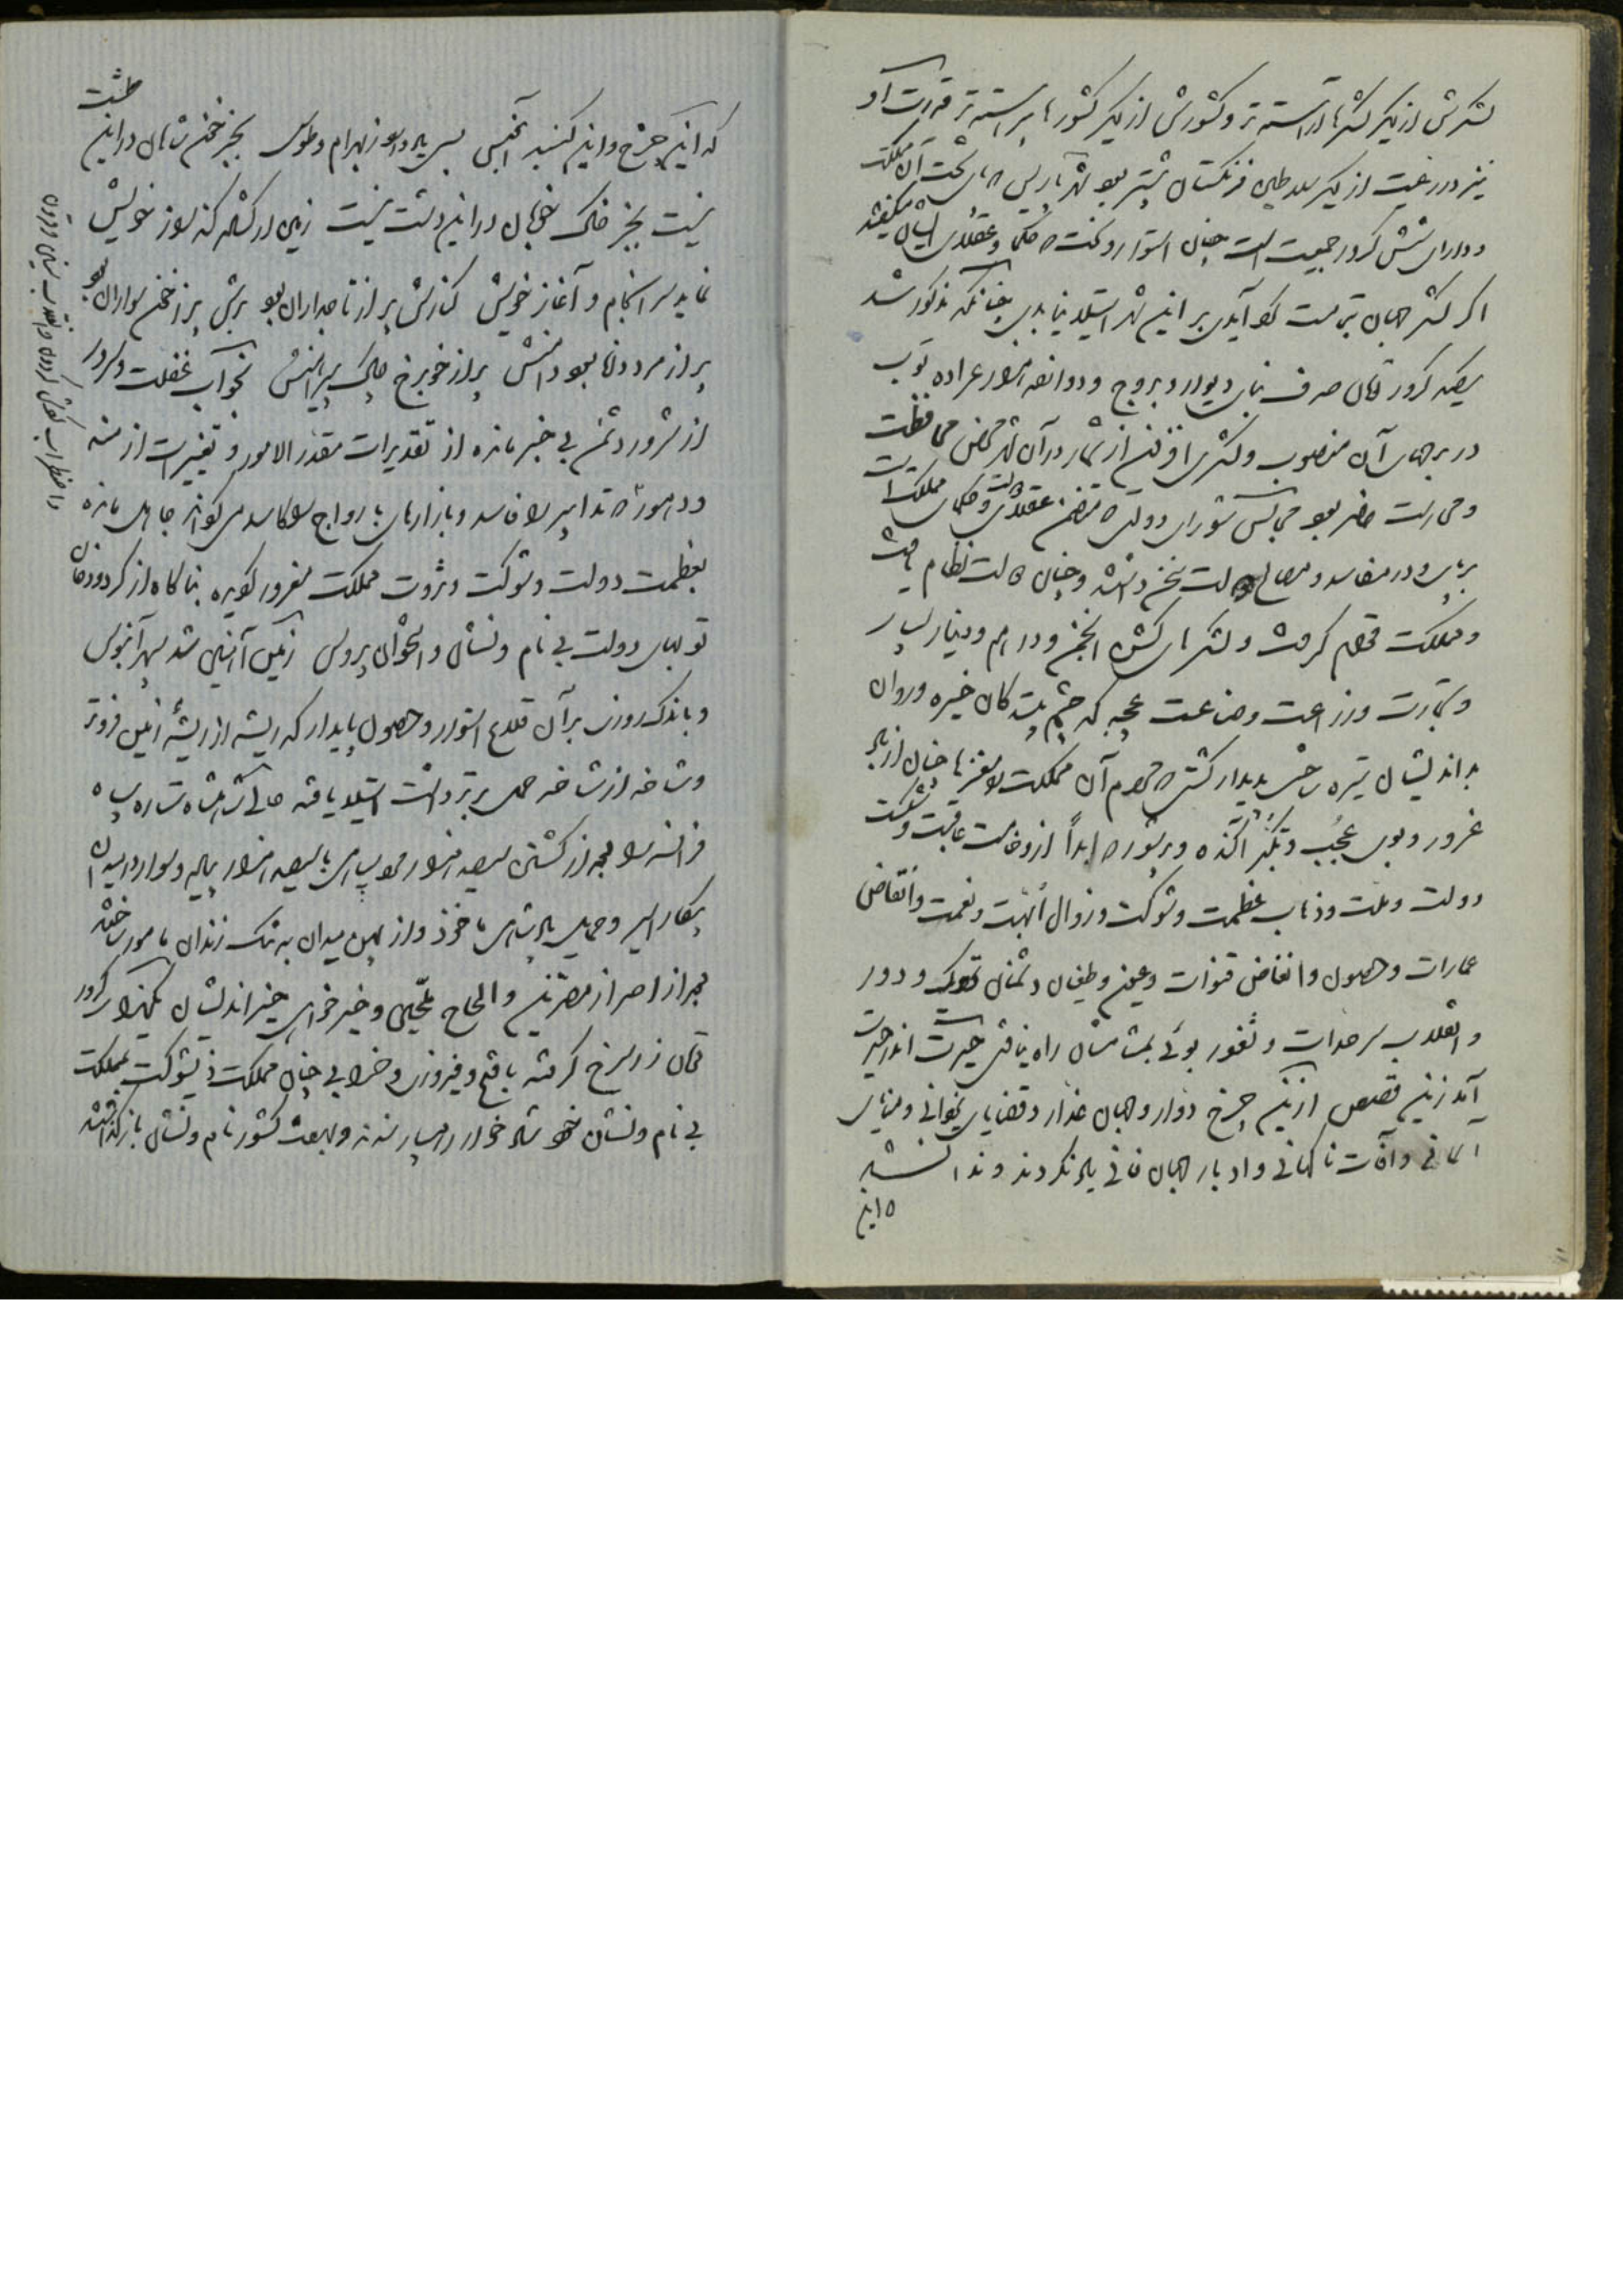 لشکرش از دیگر لشکرها آراسته تر و کشورش از دیگر کشورها پیراسته تر قدرت او
نیز در رعیت از دیگر سلاطین فرنگستان بیشتر بود شهر پاریس پای تخت آن مملکت
و دارای شش کرور جمعیت است چنان استوار و سخت که حکما و عقلای ایشان میگفتند
اگر لشکر جهان بتمامت گرد آیند بر این شهر استیلا نیابند چنانکه مذکور شد
یکصد کرور تومان صرف بنای دیوار و بروج و دوازده هزار عراده توپ
در برجهای آن منصوب و لشکری افزون از شمار در آن شهر محض محافظت
و حراست حاضر بود مجالس شورای دولتی که متضمن عقلای دولت و حکمای مملکت است
برپا و در مفاسد و مصالح دولت سخن داشتند و چنان دولت نظام یافت
و مملکت قوام گرفت و لشکرهای کشن انجمن و درهم و دینار بسیار
و تجارت و زراعت و صناعت عجیبه که چشم بینندگان خیره و روان
بداندیشان تیره ساختی پدیدار گشت که مردم آن مملکت را مغزها چنان از باد
غرور و بوی عجب و تکبر آکنده و پر شور که ابداً از وخامت عاقبت و شکست
دولت و ملت و ذهاب عظمت و شوکت و زوال ابهت و نعمت و انقراض
عمارات و حصون و انقاض قنوات و عیون و طغیان دشمنان نزدیک و دور
و انقلاب سرحدات و ثغور بوئی بمشامشان راه نیافتی حیرت اندر حیرت
آید زین قصص ازین چرخ دوار و جهان غدار و قضایای نخوانی و منایای
آسمانی و آفات ناگهانی و ادبار جهان فانی یاد نکردند و ندانستند
که این
که این چرخ و این گنبد آبنوس بسی یاد دارد ز بهرام و طوس بجز خون شاهان در این طشت
نیست بجز خاک خوبان در این دشت نیست زمین گر گشاده کند راز خویش
نماید سر انجام و آغاز خویش کنارش پر از تاجداران بود برش پر ز خون سواران بود
پر از مرد دانا بود دامنش پر از خوبرخ چاک پیراهنش بخواب غفلت و سرور
از شرور دشمن بی خبر مانده از تقدیرات مقدر الامور و تغییرات ازمنه
و دهور که تدابیر را فاسد و بازارهای با رواج را کاسد میکند جاهل مانده
بعظمت دولت و شوکت و ثروت مملکت مغرور گردیده بناگاه از گرد دودمان
توپهای دولت بی نام و نشان و اخوان پروس زمین آهنین شد سپهر آبنوس
و باندک روزی بر آن قلاع استوار و حصون پایدار که ریشه از ریشه زمین فروتر
و شاخه از شاخه حمل برتر داشت استیلا یافته
فرانسه را بعد از کشتن سیصد هزار سپاهی با سیصد هزار پیاده و سوار در میدان
پیکار اسیر و جمله سپاهش ماخوذ و از همین میدان به تنگ زندان مامور ساختند
بعد از اصرار مصرین و الحاح ملحین و خیرخواهی خیراندیشان یکهزار کرور
تومان زر سرخ گرفته با فتح و فیروزی و خرابی چنان مملکت ذیشوکت بمملکت
بی نام و نشان خود شاد خوار رهسپار شدند و بوسعت کشور نام و نشان باز گذاشتند